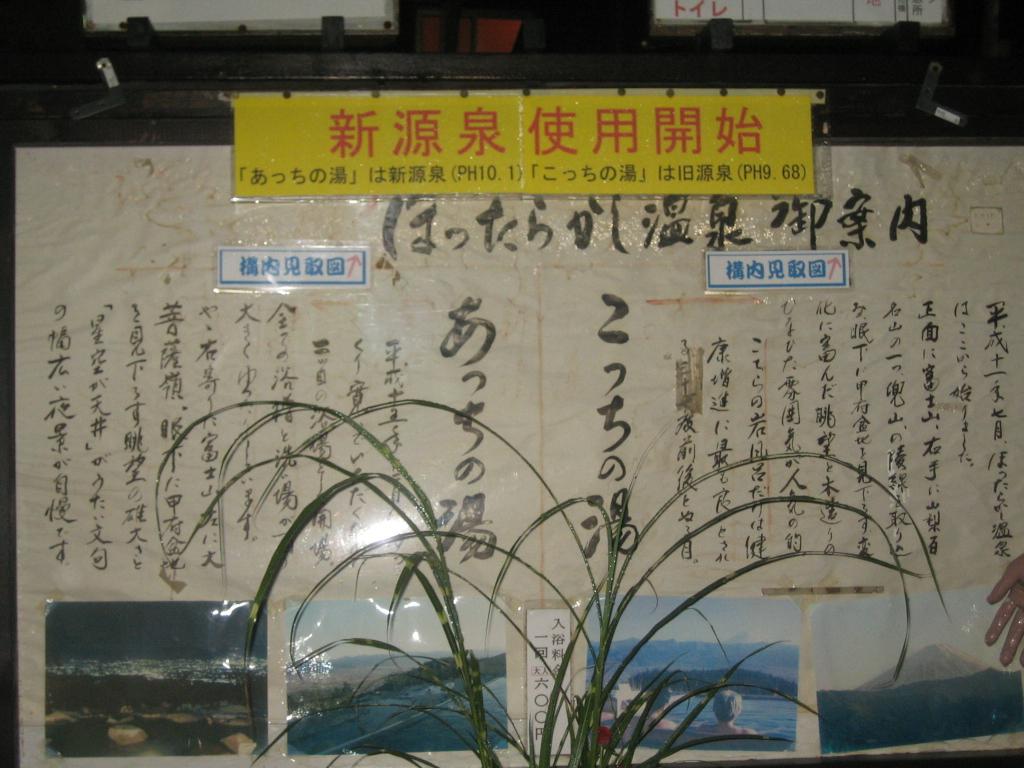 トイレ
新源泉使用開始
「あっちの湯」は新源泉(PH10.1)「こっちの湯」は旧源泉(PH9.68)
ほったらかし温泉御案内
構内見取図↑
構内見取図↑
平成十一年七月、ほったらかし温泉
はここから始りました。
正面に富士山、右手に山梨百
名山の一つ兜山の稜線を取り込
み、眼下に甲府盆地を見下ろす変
化に富んだ眺望と木造りの
ひなびた雰囲気が人気の的
こちらの岩風呂だけは健
康増進に最も良いとされ
前後とやや
こっちの湯
あっちの湯
平成十五年
くり貸
二つ目の
全ての浴槽と洗場が
大きくゆ
やや右寄りに富士山左に大
菩薩嶺、眼下に甲府盆地
を見下ろす眺望の雄大さと
「星空が天井」がうたい文句
の幅広い夜景が自慢です
入浴料金
一回大人六〇〇円